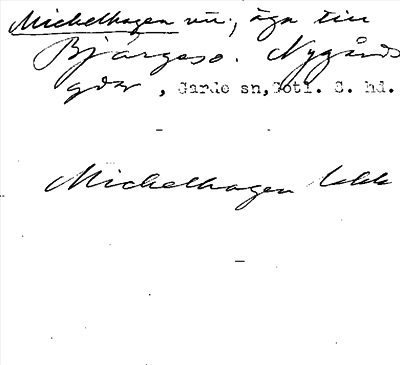 Michelhagen vn., äga till
Bjärges o. Nygårds
gdr, Garde sn, Gotl. S. hd.
Michelhagen